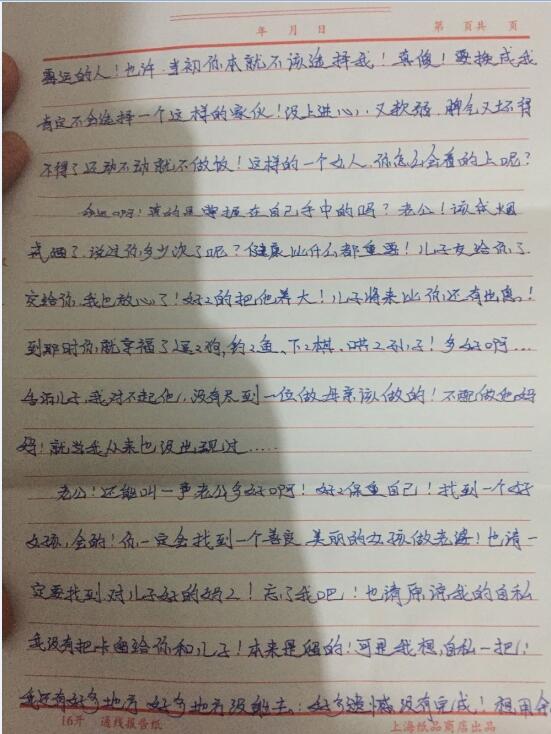 年 月 日 第 页共 页
幸运的人!也许,当初你本就不该选择我!真傻!要换成我
肯定不会选择一个这样的家伙!没上进心,又软弱,脾气又坏得
不得了还动不动就不做饭!这样的一个女人,你怎么会看的上呢?
命运啊!真的是掌握在自己手中的吗?老公!该戒烟
戒酒了,说过你多少次了呢?健康比什么都重要!儿子交给你了,
交给你,我也放心了!好2的把他养大!儿子将来比你还有出息!
到那时你就享福了逗2狗,钓2鱼、下2棋、哄2孙子!多好啊...
告诉儿子,我对不起他,没有尽到一位做母亲该做的!不配做他妈
妈!就当我从来也没出现过.....
老公!还能叫一声老公多好啊!好2保重自己!找到一个好
女孩,会的!你一定会找到一个善良、美丽的女孩做老婆!也请一
定要找到对儿子好的妈2!忘了我吧!也请原谅我的自私
我没有把卡留给你和儿子!本来是留的!可是我想自私一把!
我还有好多地方 好多地方没能去!好多遗憾没有完成!想用余
16开 通线报告纸 上海纸品商店出品